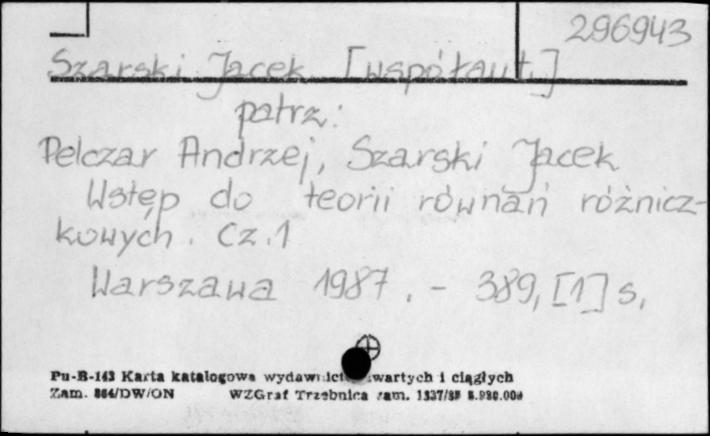 296943
Szarski Jacek [współaut.]
patrz:
Pelczar Andrzej, Szarski Jacek
Wstęp do teorii równań różnicz-
kowych. Cz. 1
Warszawa 1987. - 389, [1] s.
Pu-B-143 Karta katalogowa wydawnictw zwartych i ciągłych
Zam. 864/DW/ON WZGraf Trzebnica zam.